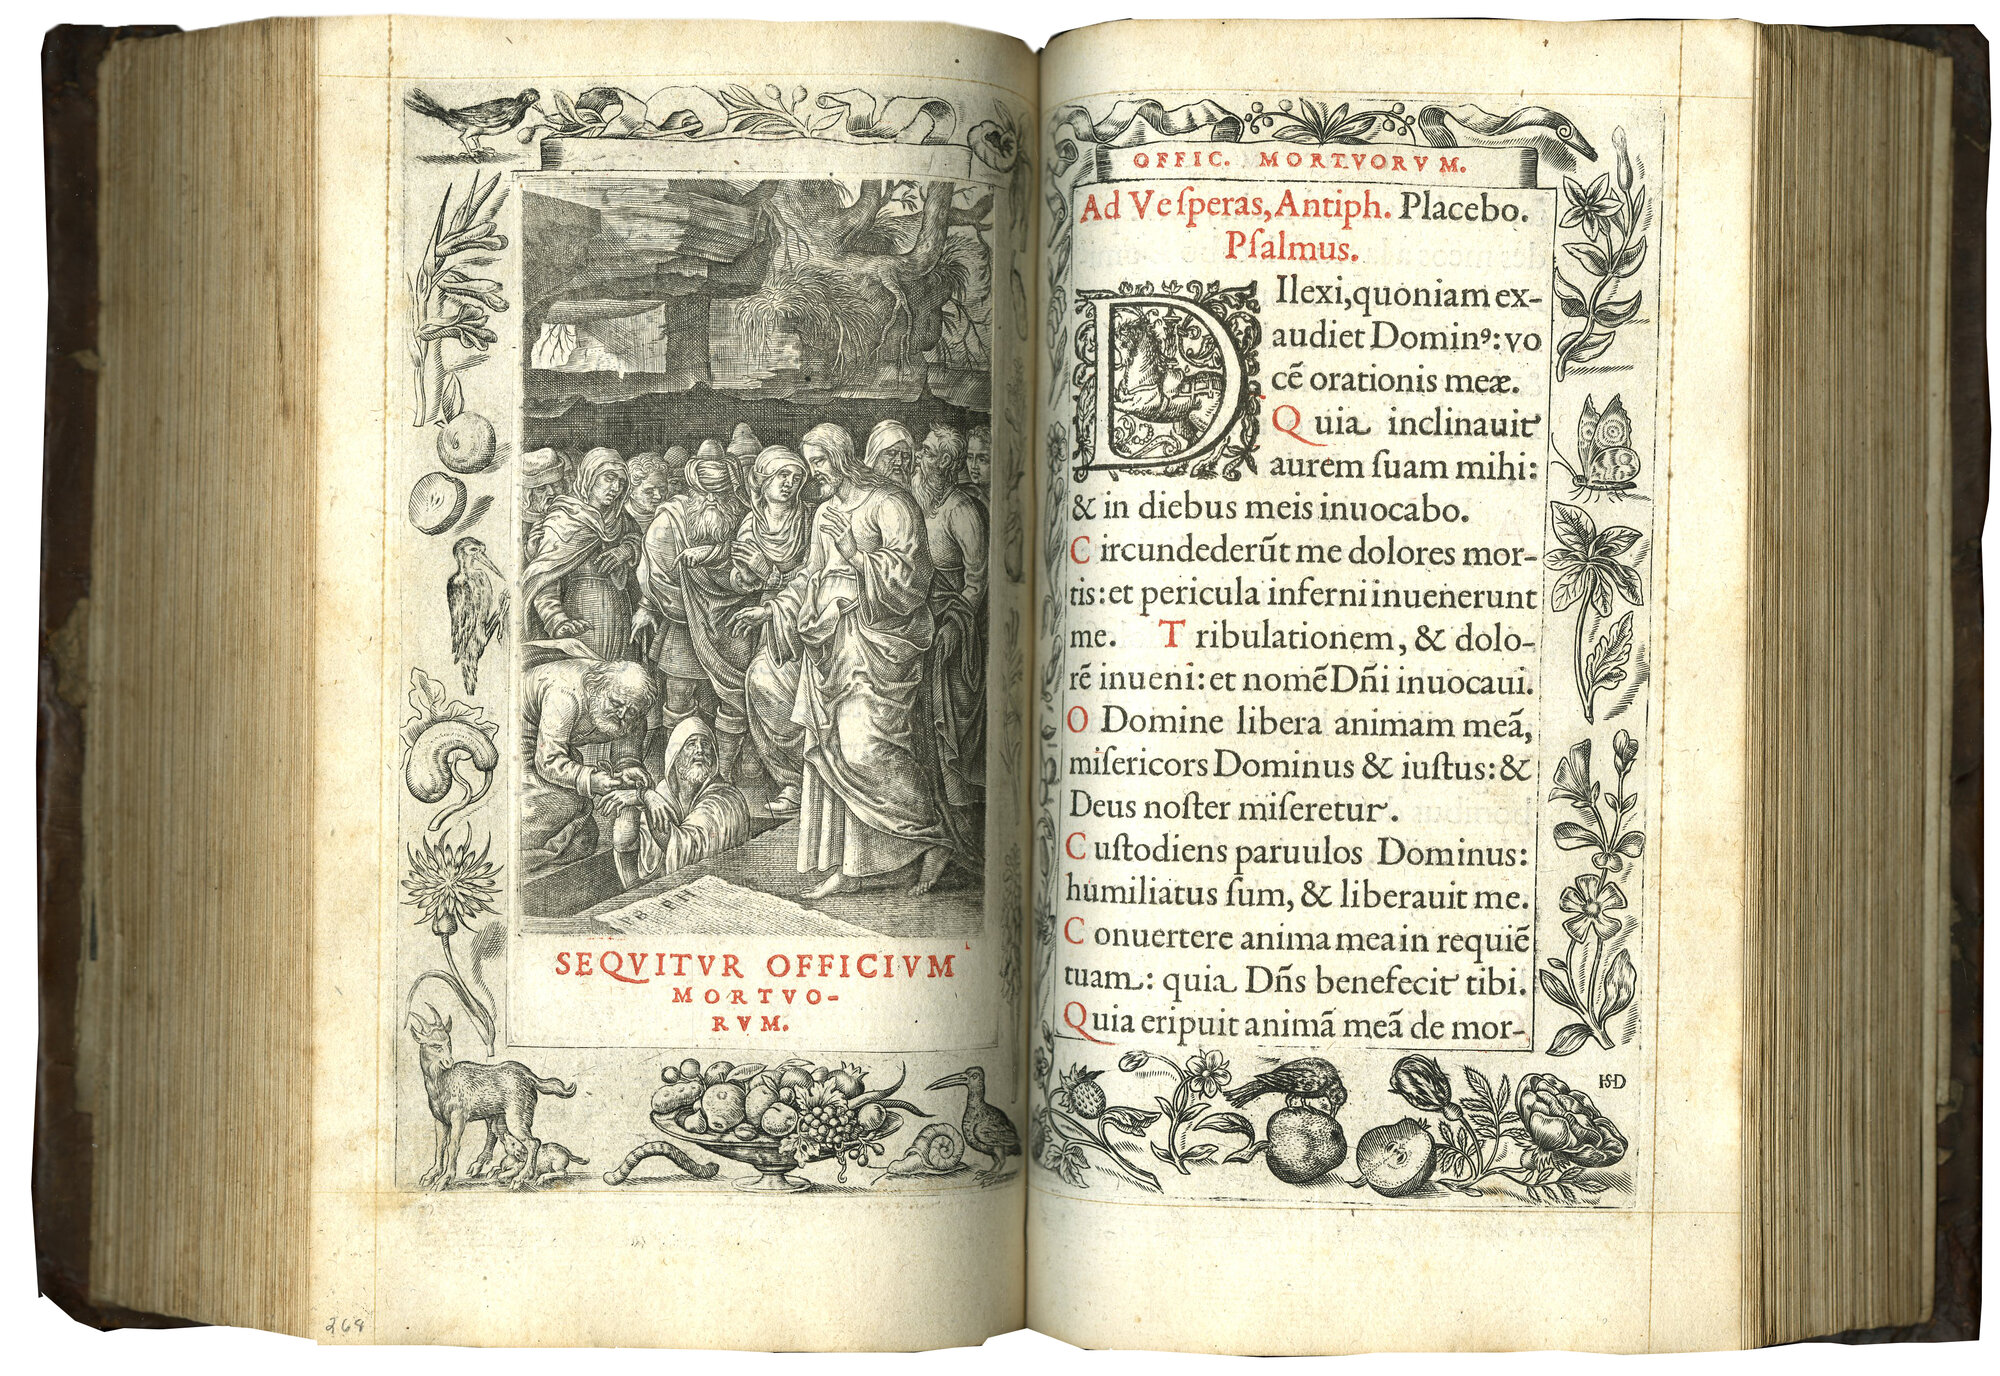 PB. P. H
SEQVITVR OFFICIVM
MORTVO-
RVM.
268
OFFIC. MORTVORVM.
Ad Veſperas, Antiph. Placebo.
Pſalmus.
DIlexi, quoniam ex-
audiet Dominꝰ: vo
cẽ orationis meæ.
Quia inclinauit
aurem ſuam mihi:
& in diebus meis inuocabo.
Circundederũt me dolores mor-
tis: et pericula inferni inuenerunt
me. Tribulationem, & dolo-
rẽ inueni: et nomẽ Dñi inuocaui.
O Domine libera animam meã,
miſericors Dominus & iuſtus: &
Deus noſter miſeretur.
Cuſtodiens paruulos Dominus:
humiliatus ſum, & liberauit me.
Conuertere anima mea in requiẽ
tuam: quia Dñs benefecit tibi.
Quia eripuit animã meã de mor-
HSD